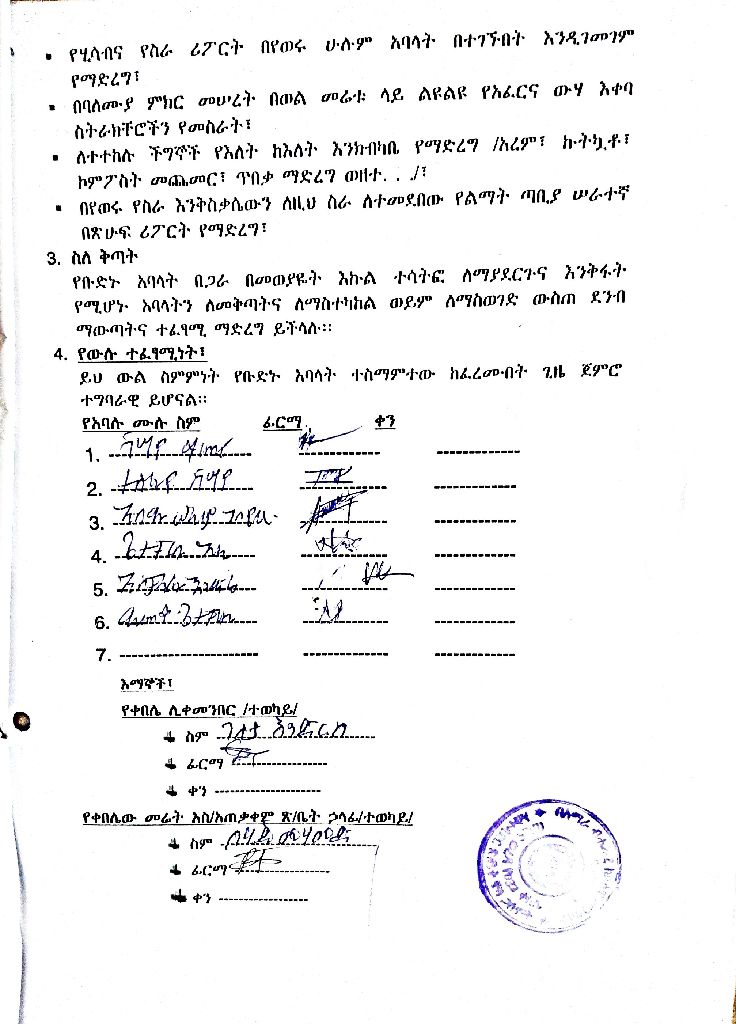 ▪ የሂሳብና የስራ ሪፖርት በየወሩ ሁሉም አባላት በተገኙበት እንዲገመገም
የማድረግ፣
▪ በባለሙያ ምክር መሠረት በወል መሬቱ ላይ ልዩልዩ የአፈርና ውሃ እቀባ
ስትራክቸሮችን የመስራት፣
▪ ለተተከሉ ችግኞች የእለት ከእለት እንክብካቤ የማድረግ /አረም፣ ኩትኳቶ፣
ኮምፖስት መጨመር፣ ጥበቃ ማድረግ ወዘተ. . ./፣
▪ በየወሩ የስራ እንቅስቃሴውን ለዚህ ስራ ለተመደበው የልማት ጣቢያ ሠራተኛ
በጽሁፍ ሪፖርት የማድረግ፣
3. ስለ ቅጣት
የቡድኑ አባላት በጋራ በመወያዬት እኩል ተሳትፎ ለማያደርጉና እንቅፋት
የሚሆኑ አባላትን ለመቅጣትና ለማስተካከል ወይም ለማስወገድ ውስጠ ደንብ
ማውጣትና ተፈፃሚ ማድረግ ይችላሉ።
4. የውሉ ተፈፃሚነት፣
ይህ ውል ስምምነት የቡድኑ አባላት ተስማምተው ከፈረሙበት ጊዜ ጀምሮ
ተግባራዊ ይሆናል።
የአባሉ ሙሉ ስም ፊርማ ቀን
1.
2.
3.
4.
5.
6.
7.
እማኞች፣
የቀበሌ ሊቀመንበር /ተወካይ/
ስም
ፊርማ
ቀን
የቀበሌው መሬት አስ/አጠቃቀም ጽ/ቤት ኃላፊ/ተወካይ/
ስም
ፊርማ
ቀን